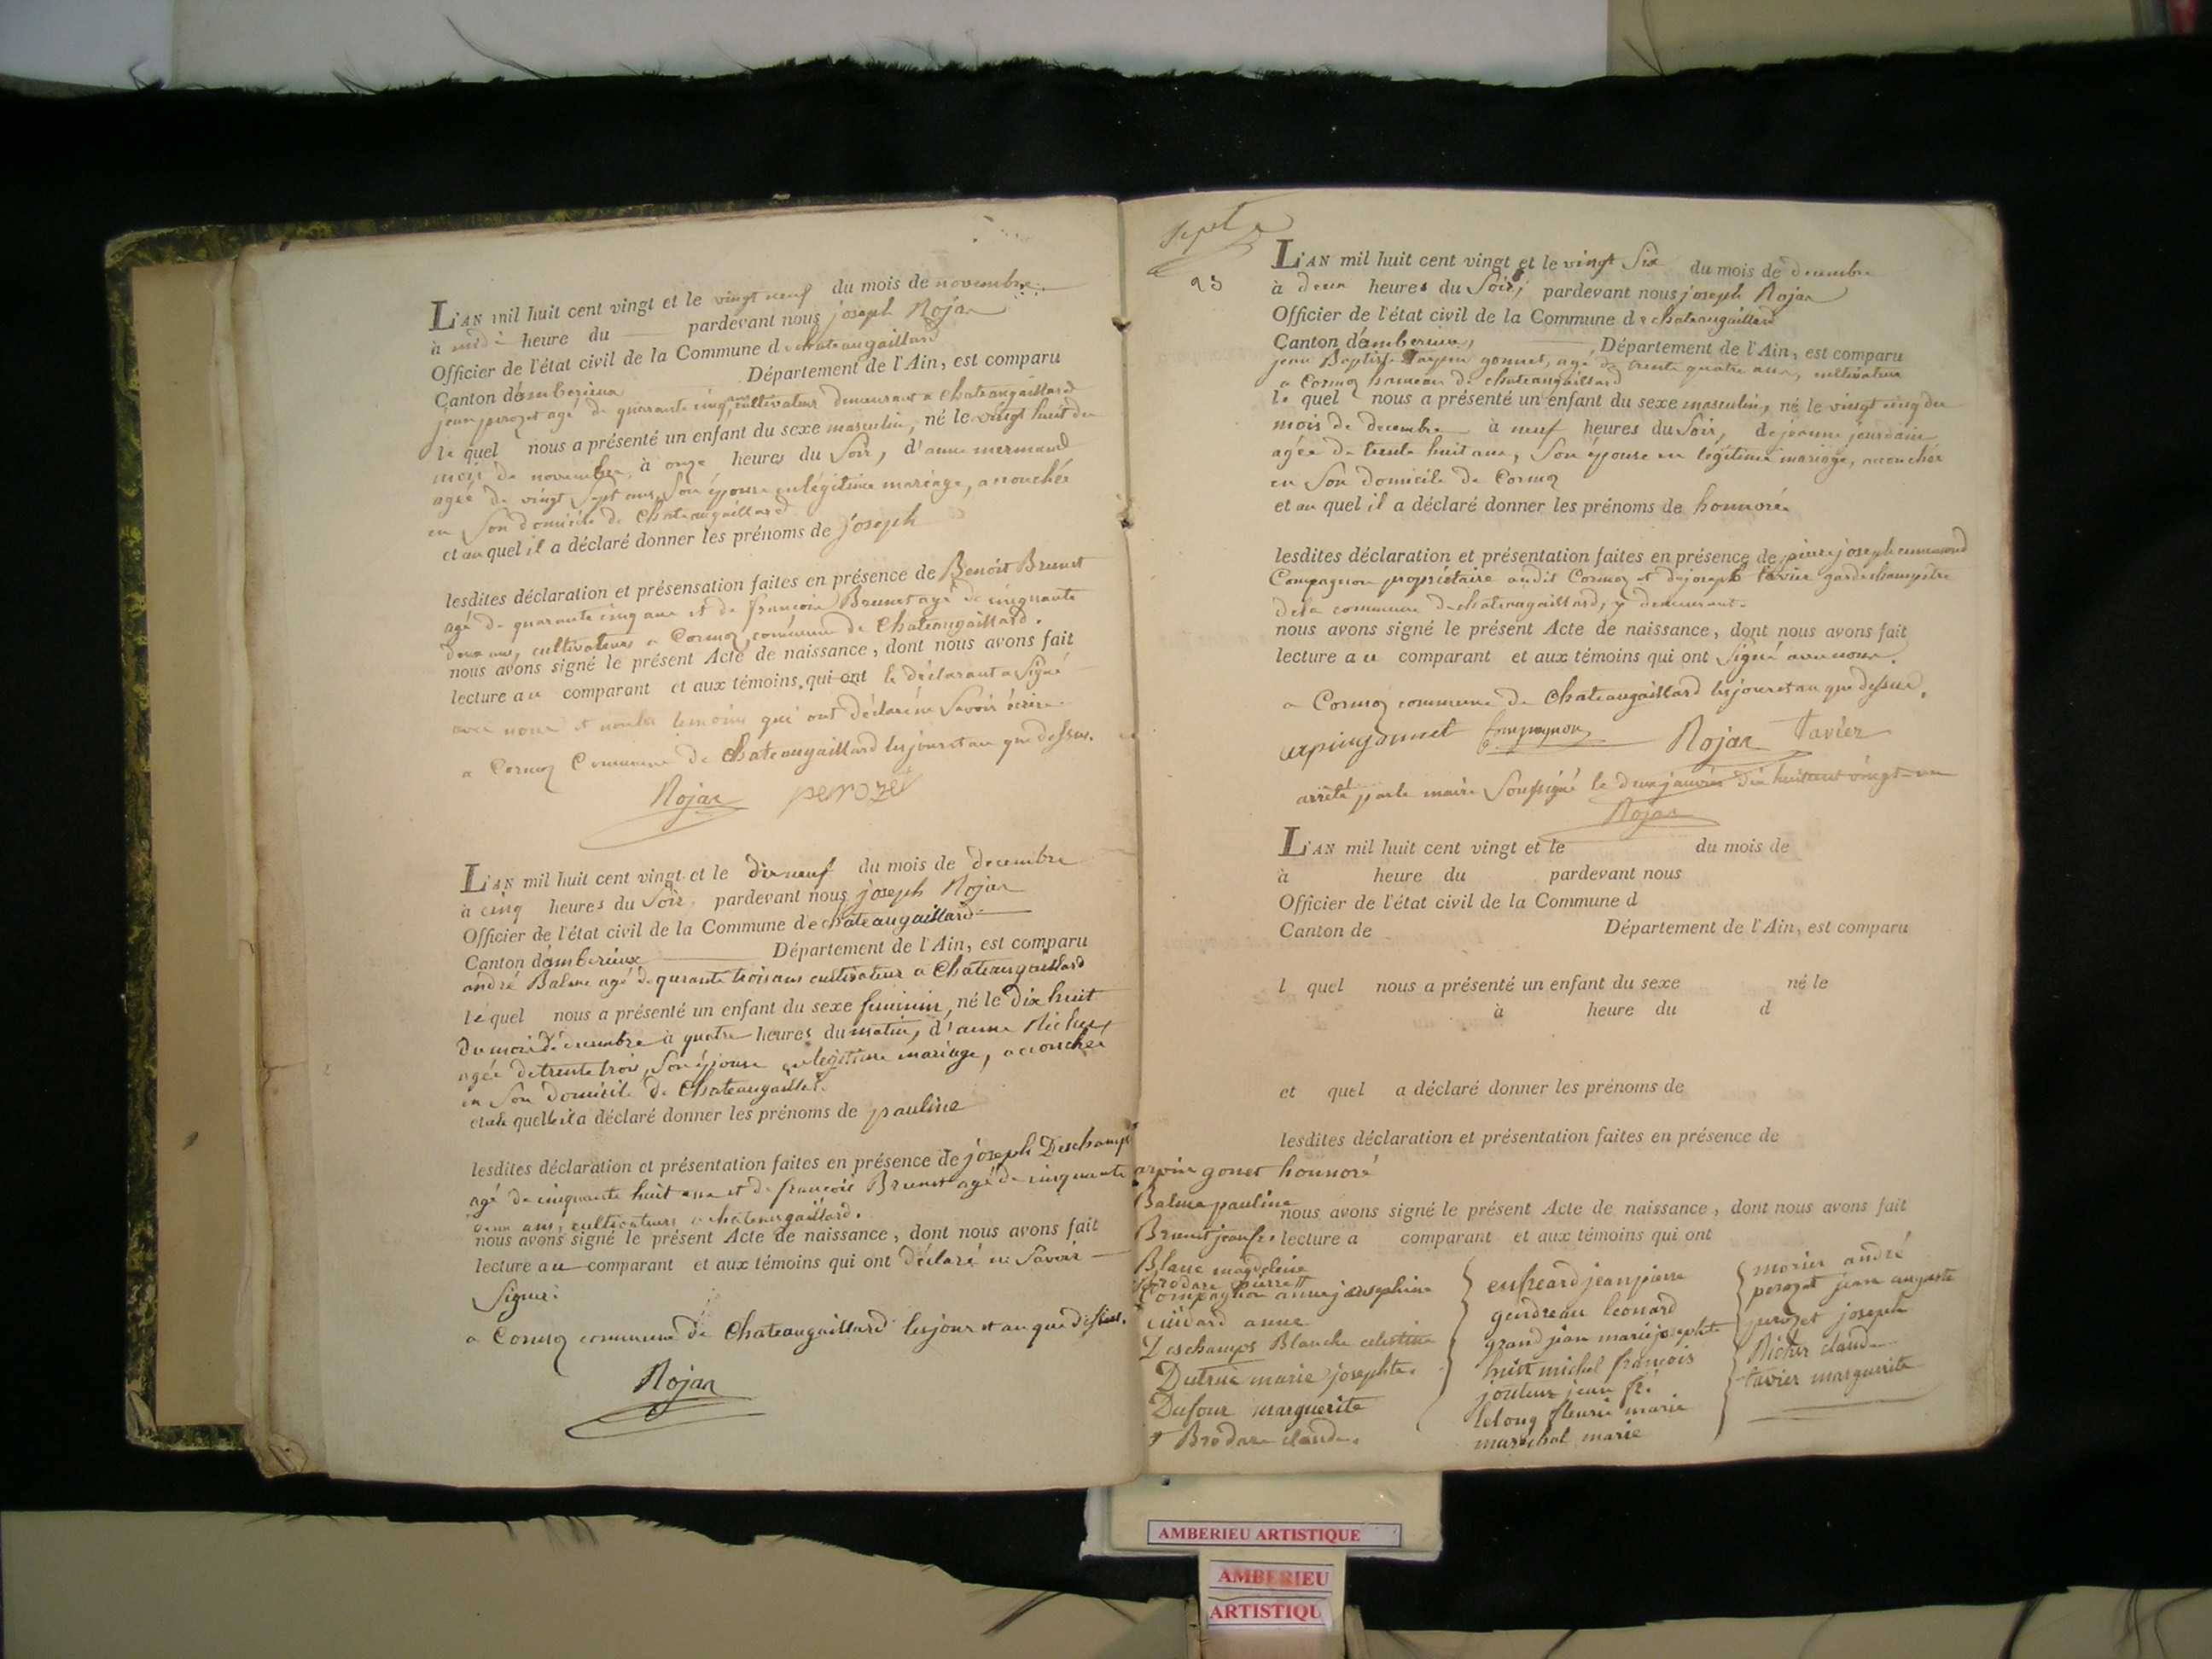 L'AN mil huit cent vingt et le vingt neuf du mois de novembre
à midi heure du pardevant nous joseph Rojan
Officier de l'état civil de la Commune de chateaugaillard
Canton d'amberieux Département de l'Ain, est comparu
jean perozet agé de quarante cinq ans cultivateur demeurant a chateaugaillard
le quel nous a présenté un enfant du sexe masculin, né le vingt huit du
mois de novembre, à onze heures du Soir, d'anne mermand
agée de vingt Sept ans, Son épouse en légitime mariage, accouchée
en Son domicile de Chateaugaillard
et au quel il a déclaré donner les prénoms de joseph
lesdites déclaration et présensation faites en présence de Benoit Brunet
agé de quarante cinq ans et de francois Brunet agé de cinquante
deux ans, cultivateurs a Cormoz, commune de Chateaugaillard.
nous avons signé le présent Acte de naissance, dont nous avons fait
lecture au comparant et aux témoins, qui ont le déclarant a Signé
avec nous et non les temoins qui ont déclaré ne Savoir écrire
a Cormoz Commune de Chateaugaillard les jour et an que dessus.
Rojan perozet
L'AN mil huit cent vingt et le dix neuf du mois de decembre
à cinq heures du Soir, pardevant nous joseph Rojan
Officier de l'état civil de la Commune de chateaugaillard
Canton d'amberieux Département de l'Ain, est comparu
andré Balme agé de qurante trois ans cultivateur a Chateaugaillard
le quel nous a présenté un enfant du sexe feminin, né le dix huit
du mois de decembre à quatre heures du matin, d'anne Richer
agée de trente trois, Son épouse en legitime mariage, accouchée
en Son domicile de Chateaugaillard.
et a la quelle il a déclaré donner les prénoms de pauline
lesdites déclaration et présentation faites en présence de joseph Deschamps
agé de cinquante huit ans et de francois Brunet agé de cinquante
deux ans, cultivateurs a chateaugaillard.
nous avons signé le présent Acte de naissance, dont nous avons fait
lecture au comparant et aux témoins qui ont déclaré ne Savoir
Signer.
a Cormoz commune de Chateaugaillard les jour et an que dessus.
Rojan
Sept
23
L'AN mil huit cent vingt et le vingt Six du mois de decembre
à deux heures du Soir, pardevant nous joseph Rojan
Officier de l'état civil de la Commune de chateaugaillard
Canton d'amberieux, Département de l'Ain, est comparu
jean Baptiste gonnet, agé de trente quatre ans, cultivateur
a Cormoz hameau de chateaugaillard
le quel nous a présenté un enfant du sexe masculin, né le vingt cinq du
mois de decembre à neuf heures du Soir, de jeanne jourdain
agée de trente huit ans, Son épouse en légitime mariage, accouchée
en Son domicile de Cormoz
et au quel il a déclaré donner les prénoms de honnoré
lesdites déclaration et présentation faites en présence de pierre joseph ennemond
Compagnon propriétaire audit Cormoz et de joseph tavier garde champêtre
de la commune de chateaugaillard, y demeurant.
nous avons signé le présent Acte de naissance, dont nous avons fait
lecture au comparant et aux témoins qui ont Signé avec nous.
a Cormoz commune de Chateaugaillard les jour et an que dessus.
arpin gonnet Compagnon Rojan tavier
arrêté par le maire Soussigné le deux janvier dix huit cent vingt un
Rojan
L'AN mil huit cent vingt et le du mois de
à heure du pardevant nous
Officier de l'état civil de la Commune d
Canton de Département de l'Ain, est comparu
l quel nous a présenté un enfant du sexe né le
à heure du d
et quel a déclaré donner les prénoms de
lesdites déclaration et présentation faites en présence de
nous avons signé le présent Acte de naissance, dont nous avons fait
lecture a comparant et aux témoins qui ont
arpin gonet honnoré
Balme pauline
Brunet jean fr.
Blanc magdeleine
Brodare pierrett
Compagnon anne josephine
cuivard anne
Deschamps Blanche celestine
Dutruc marie josephte.
Dufour marguerite
+ Brodare claude.
jean pierre
gendreau leonard
grand jean marie josephte
huit michel francois
jouteur jean fr.
lelong fleurie marie
maréchal marie
morier andré
perozet jean auguste
perozet joseph
Richer claude
tavier marguerite
AMBERIEU ARTISTIQUE
AMBERIEU
ARTISTIQU